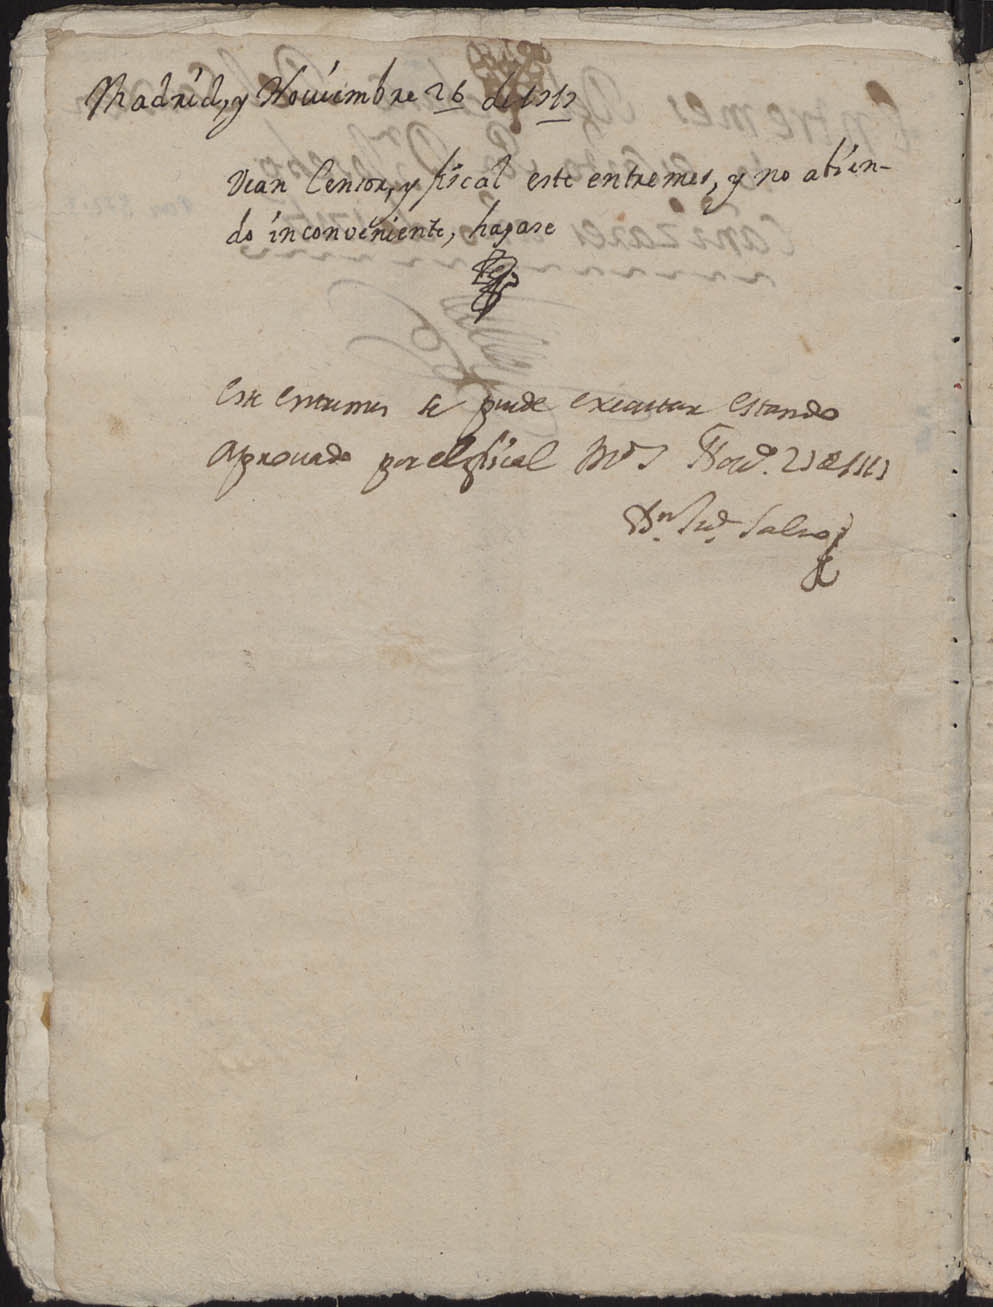 Madrid, y Noviembre 26 de 1717
Vean Censor, y fiscal este entremes, y no abien-
do inconveniente, hagase
Este entremes se puede executar estando
aprouado por el fiscal Md. y Nov.e 27 de 1717
Dn. Salvo